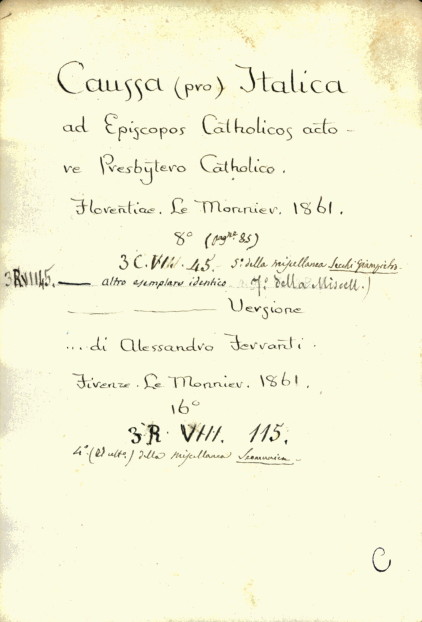 Caussa (pro) Italica
ad Episcopos Catholicos acto-
re Presbÿtero Catholico.
Florentiae. Le Monnier. 1861.
8° (pag.ne 85)
3 C. VIII. 45. 5° della miscellanea Secchi Giampietro.
3R VII 45. — altro esemplare identico (7° della Miscell.)
Versione
... di Alessandro Ferranti.
Firenze. Le Monnier. 1861.
16°
3 R VIII. 115.
4° (ed ult°) della miscellanea Scomunica
C